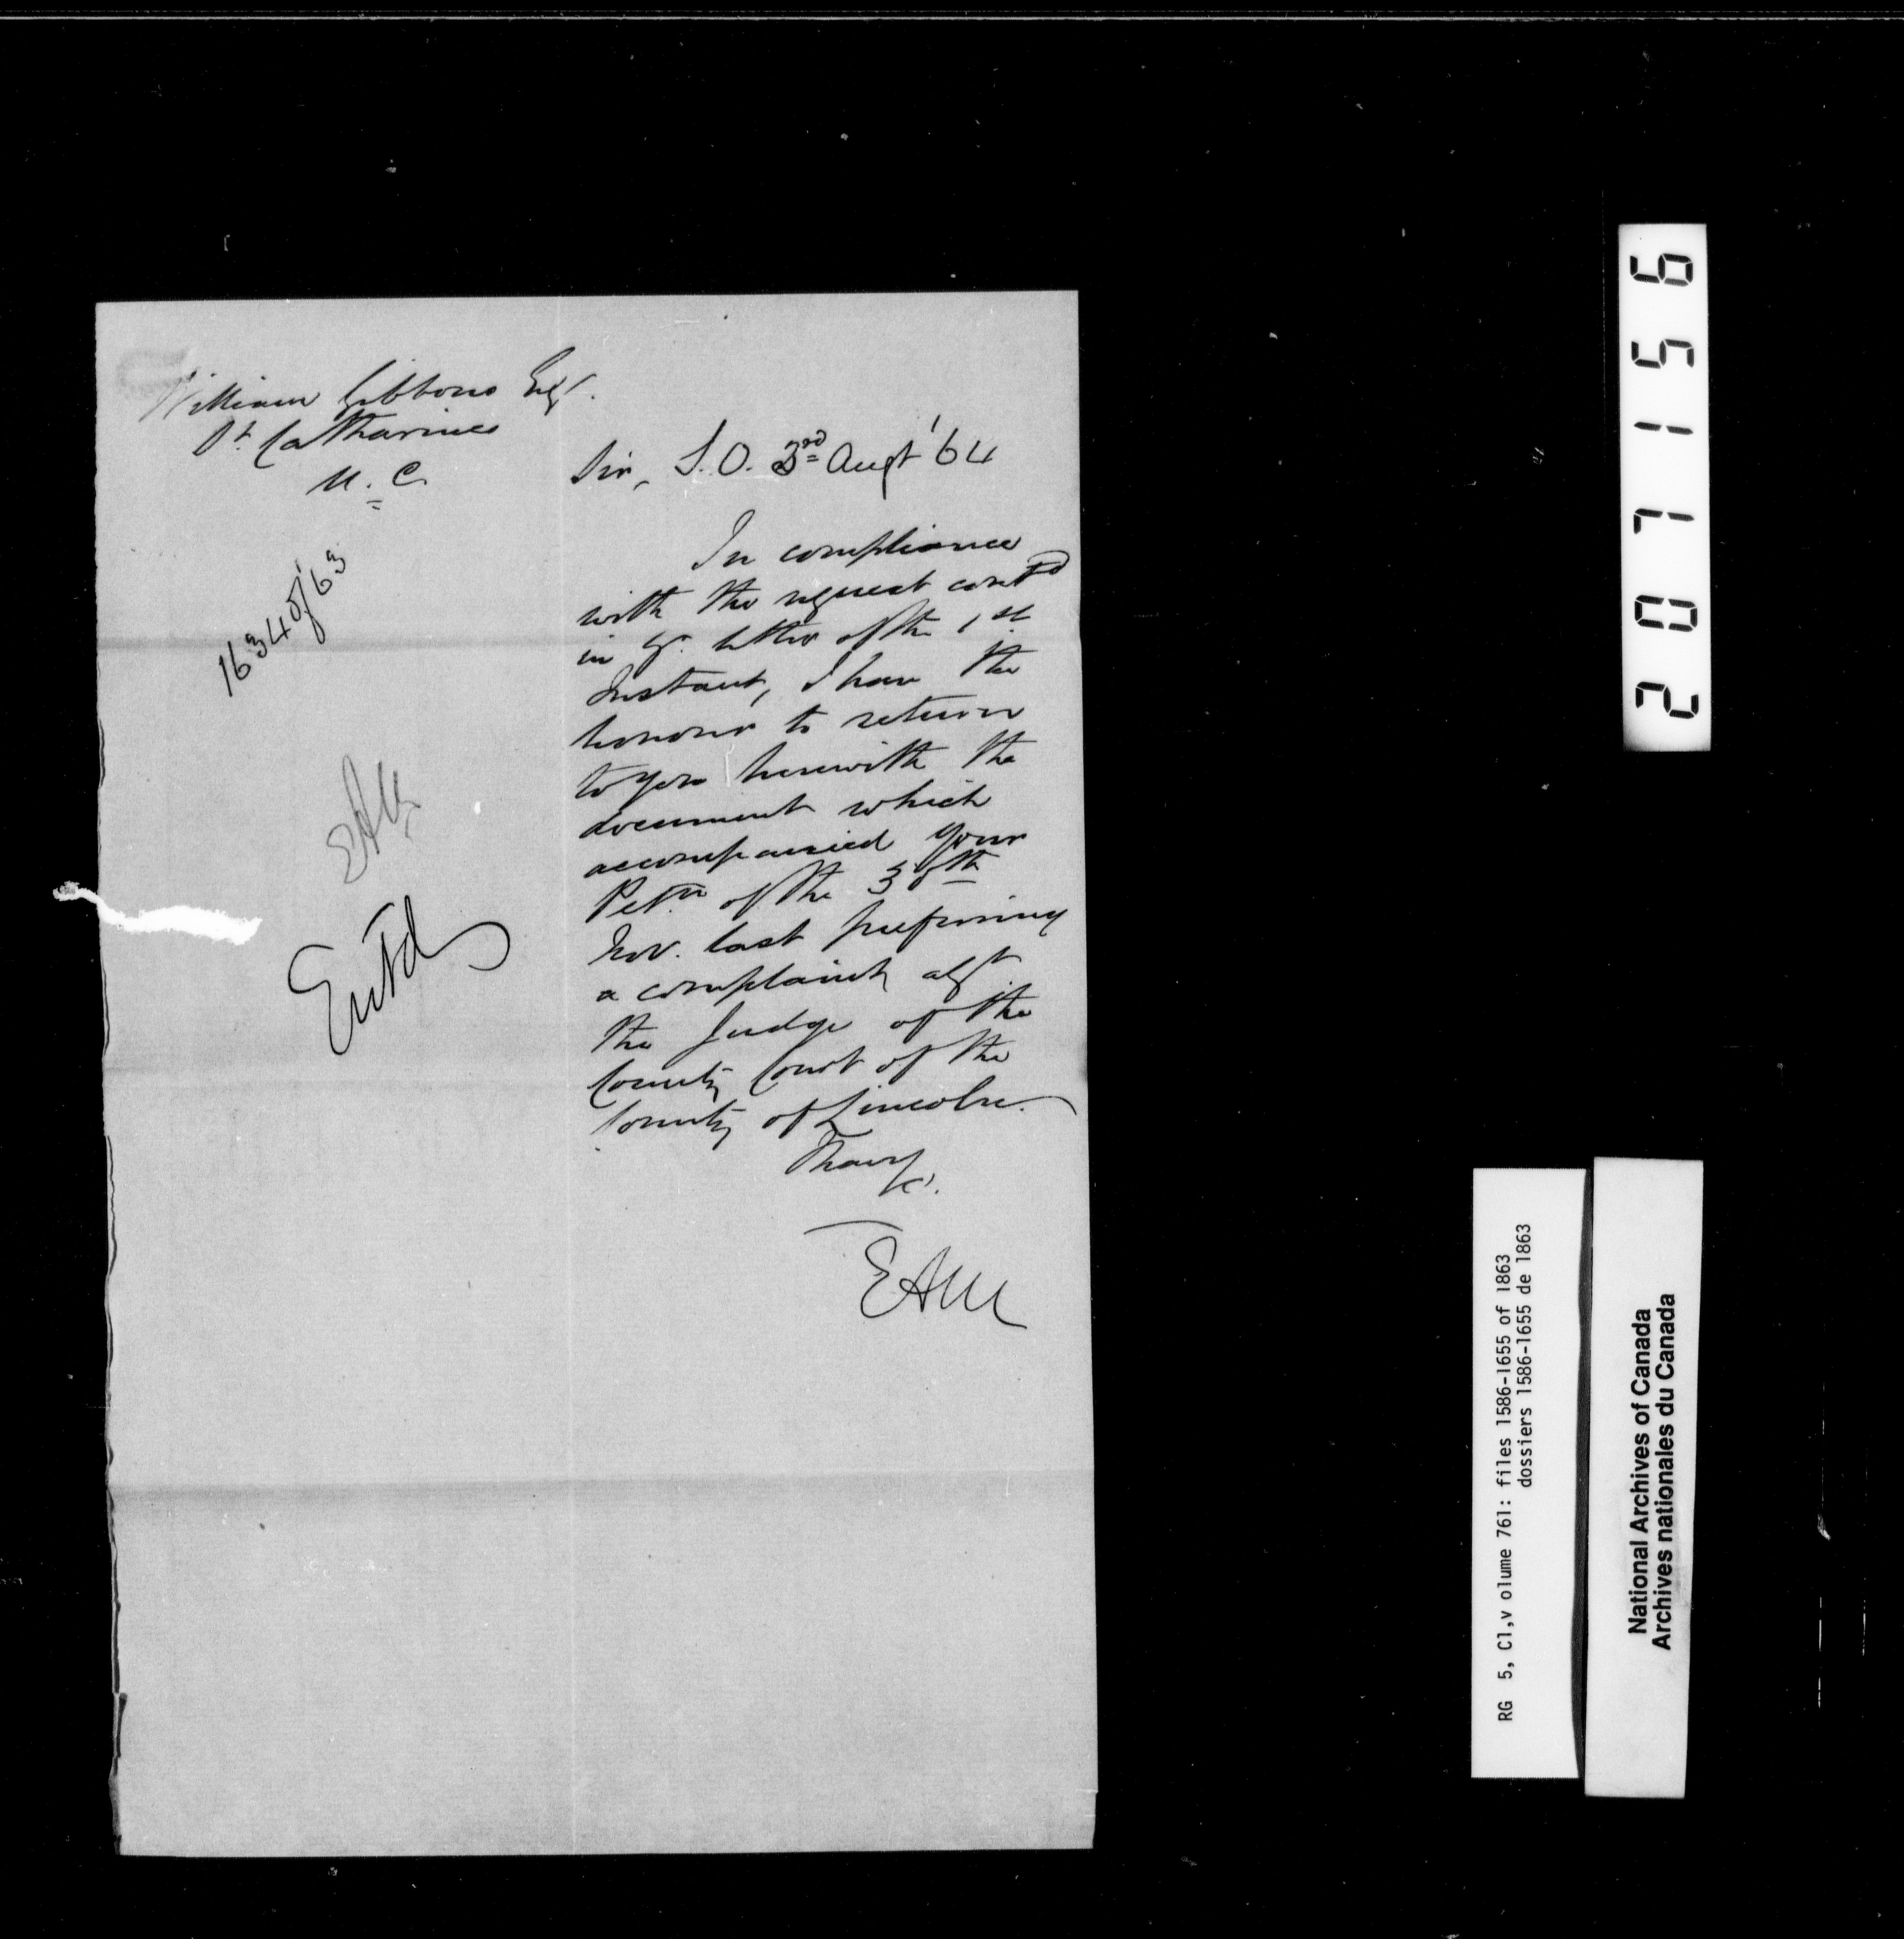 William Gibbons Esqr.
St. Catharines
U. C.
Sir, S. O. 3rd Augt '64
1634 of 63
In compliance
with the request contd
in yr. letter of the 1st
Instant, I have the
honour to return
to you herewith the
document which
accompanied your
Petn. of the 30th
Nov. last preferring
a complaint agst.
the Judge of the
County Court of the
County of Lincoln.
I have &c.
EAM
EAM
Entd
207156
RG 5, C1,v olume 761: files 1586-1655 of 1863
dossiers 1586-1655 de 1863
National Archives of Canada
Archives nationales du Canada